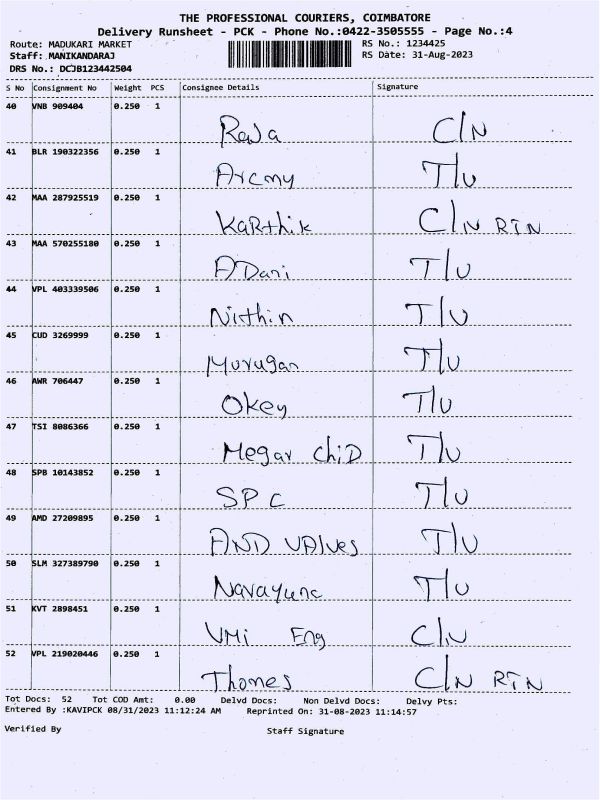 THE PROFESSIONAL COURIERS, COIMBATORE
Delivery Runsheet - PCK - Phone No.:0422-3505555 - Page No.:4
Route: MADUKARI MARKET RS No.: 1234425
Staff: MANIKANDARAJ RS Date: 31-Aug-2023
DRS No.: DCJB123442504
S No Consignment No Weight PCS Consignee Details Signature
40 VNB 909404 0.250 1 Raja C/N
41 BLR 190322356 0.250 1 Arcmy T/U
42 MAA 287925519 0.250 1 KaRthik C/N RTN
43 MAA 570255180 0.250 1 ADani T/U
44 VPL 403339506 0.250 1 Nithin T/U
45 CUD 3269999 0.250 1 Murugan T/U
46 AWR 706447 0.250 1 Okey T/U
47 TSI 8086366 0.250 1 Megar chiD T/U
48 SPB 10143852 0.250 1 SPC T/U
49 AMD 27209895 0.250 1 AND VAlves T/U
50 SLM 327389790 0.250 1 T/U
51 KVT 2898451 0.250 1 VMi Eng C/N
52 VPL 219020446 0.250 1 Thomes C/N RTN
Tot Docs: 52 Tot COD Amt: 0.00 Delvd Docs: Non Delvd Docs: Delvy Pts:
Entered By :KAVIPCK 08/31/2023 11:12:24 AM Reprinted On: 31-08-2023 11:14:57
Verified By Staff Signature